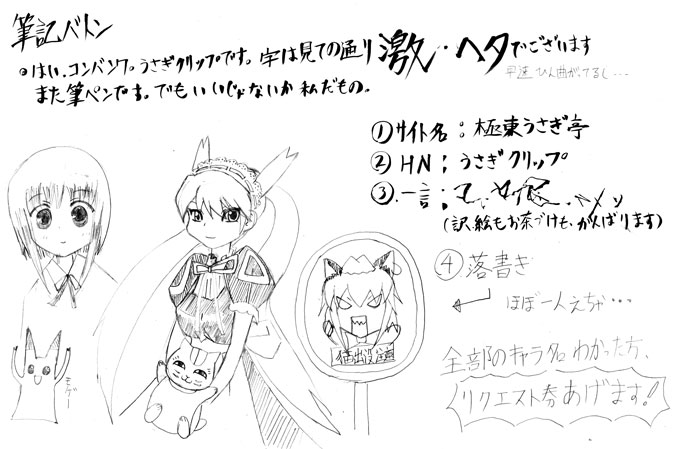 筆記バトン
はい、コンバンワ。うさぎクリップです。字は見ての通り激・ヘタでございます
早速ひん曲がってるし…
また筆ペンです。でもいいじゃないか私だもの。
①サイト名:極東うさぎ亭
②HN:うさぎクリップ
③.一言:
(訳、絵もお茶づけも、がんばります)
④落書き
ほぼ一人えちゃ…
全部のキャラ名わかった方、
リクエスト券あげます!
モゲー
猫出没注意